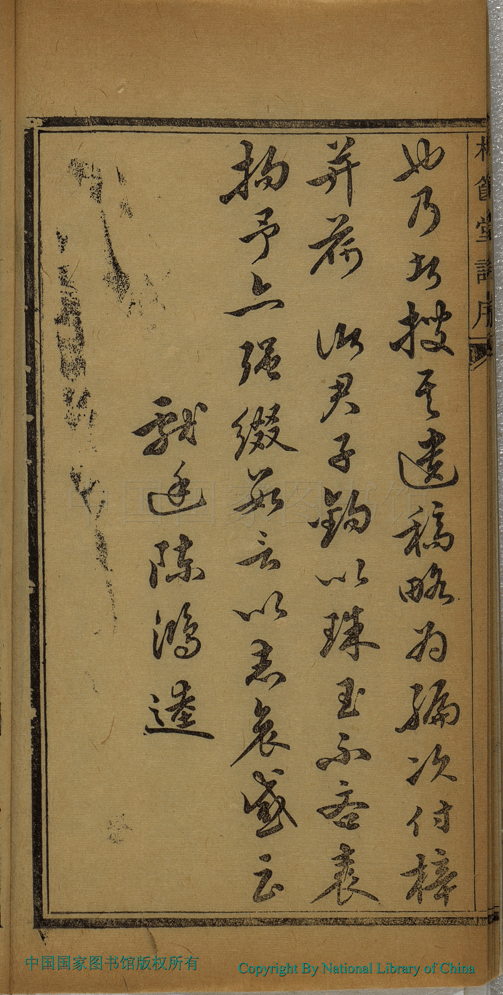 堂詩序
也乃搜其遺稿略為編次付梓
並荷 諸君子錫以珠玉不吝表
揚予亦強綴數言以志哀感云
陳鴻逵
中国国家图书馆版权所有
Copyright By National Library of China